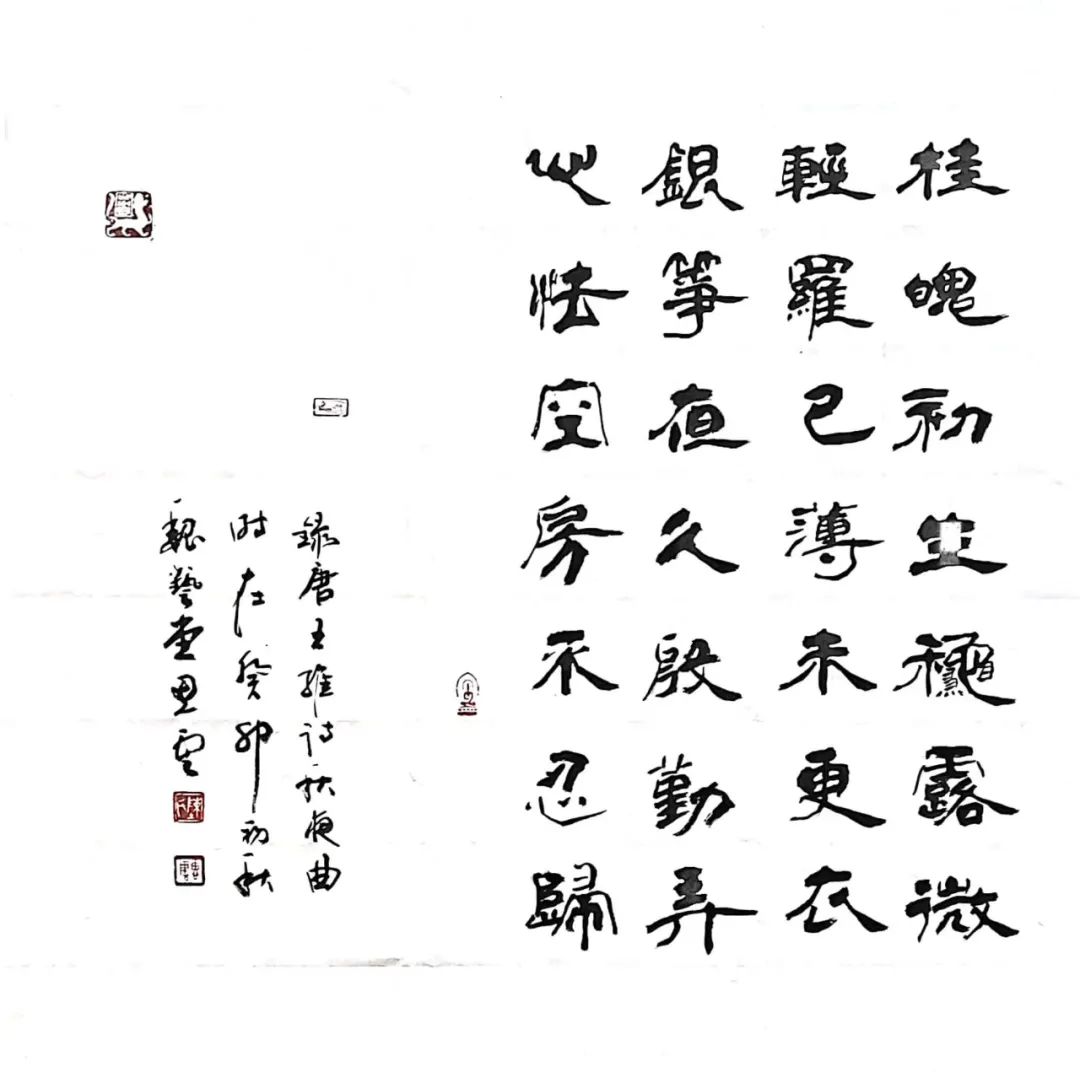 桂魄初生穐露微
輕羅已薄未更衣
銀箏夜久殷勤弄
心怯空房不忍歸
録唐王維詩秋夜曲
時在癸卯初秋
魏藝堂思雲